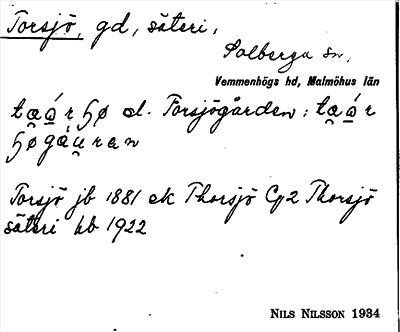 Torsjö, gd, säteri,
Solberga sn,
Vemmenhögs hd, Malmöhus län
el. Torsjögården:
Torsjö jb 1881 ek Thorsjö Thorsjö
säteri hb 1922
NILS NILSSON 1934